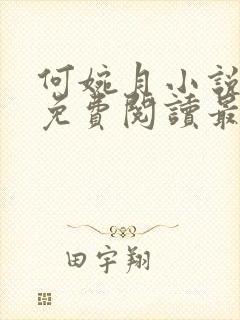 何婉月小說
免費閱讀最
田宇翔